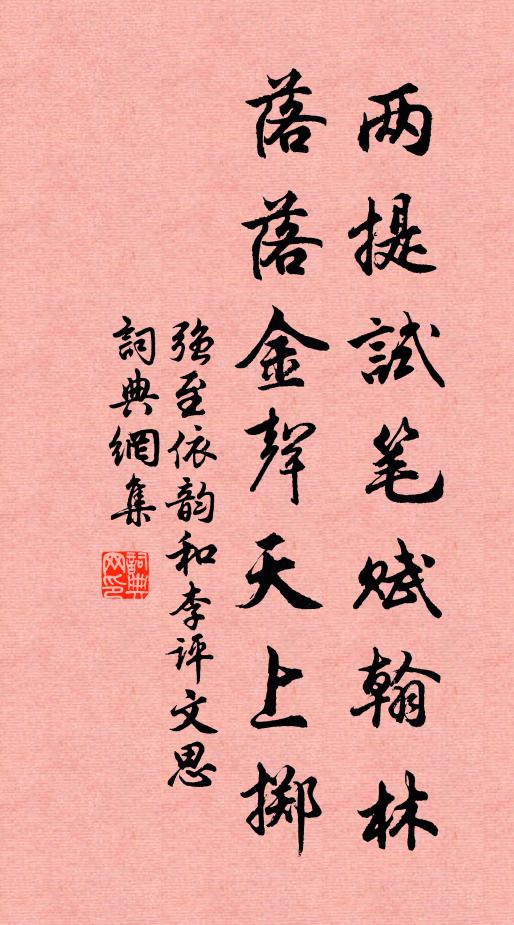 两提試笔赋翰林
落落金聲天上掷
强至依韵和李评文思
詞典網集
詞典网印